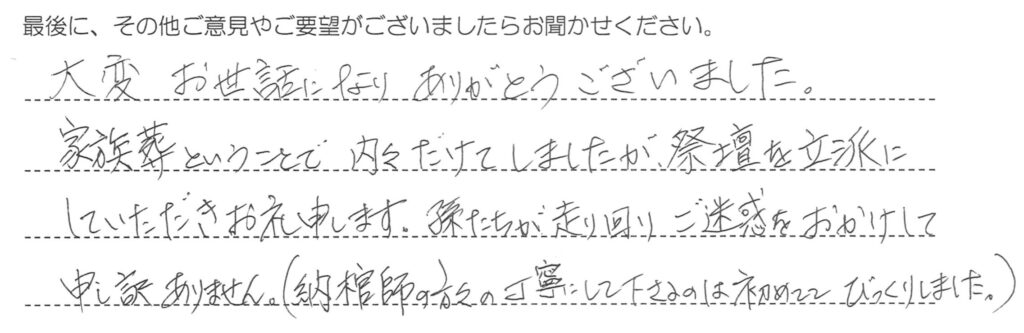 最後に、その他ご意見やご要望がございましたらお聞かせください。
大変 お世話になり ありがとうございました。
家族葬ということで 内々だけでしましたが、祭壇を立派に
していただきお礼申します。孫たちが走り回り ご迷惑をおかけして
申し訳ありません。(納棺師の方々の丁寧にして下さるのは初めてで びっくりしました。)